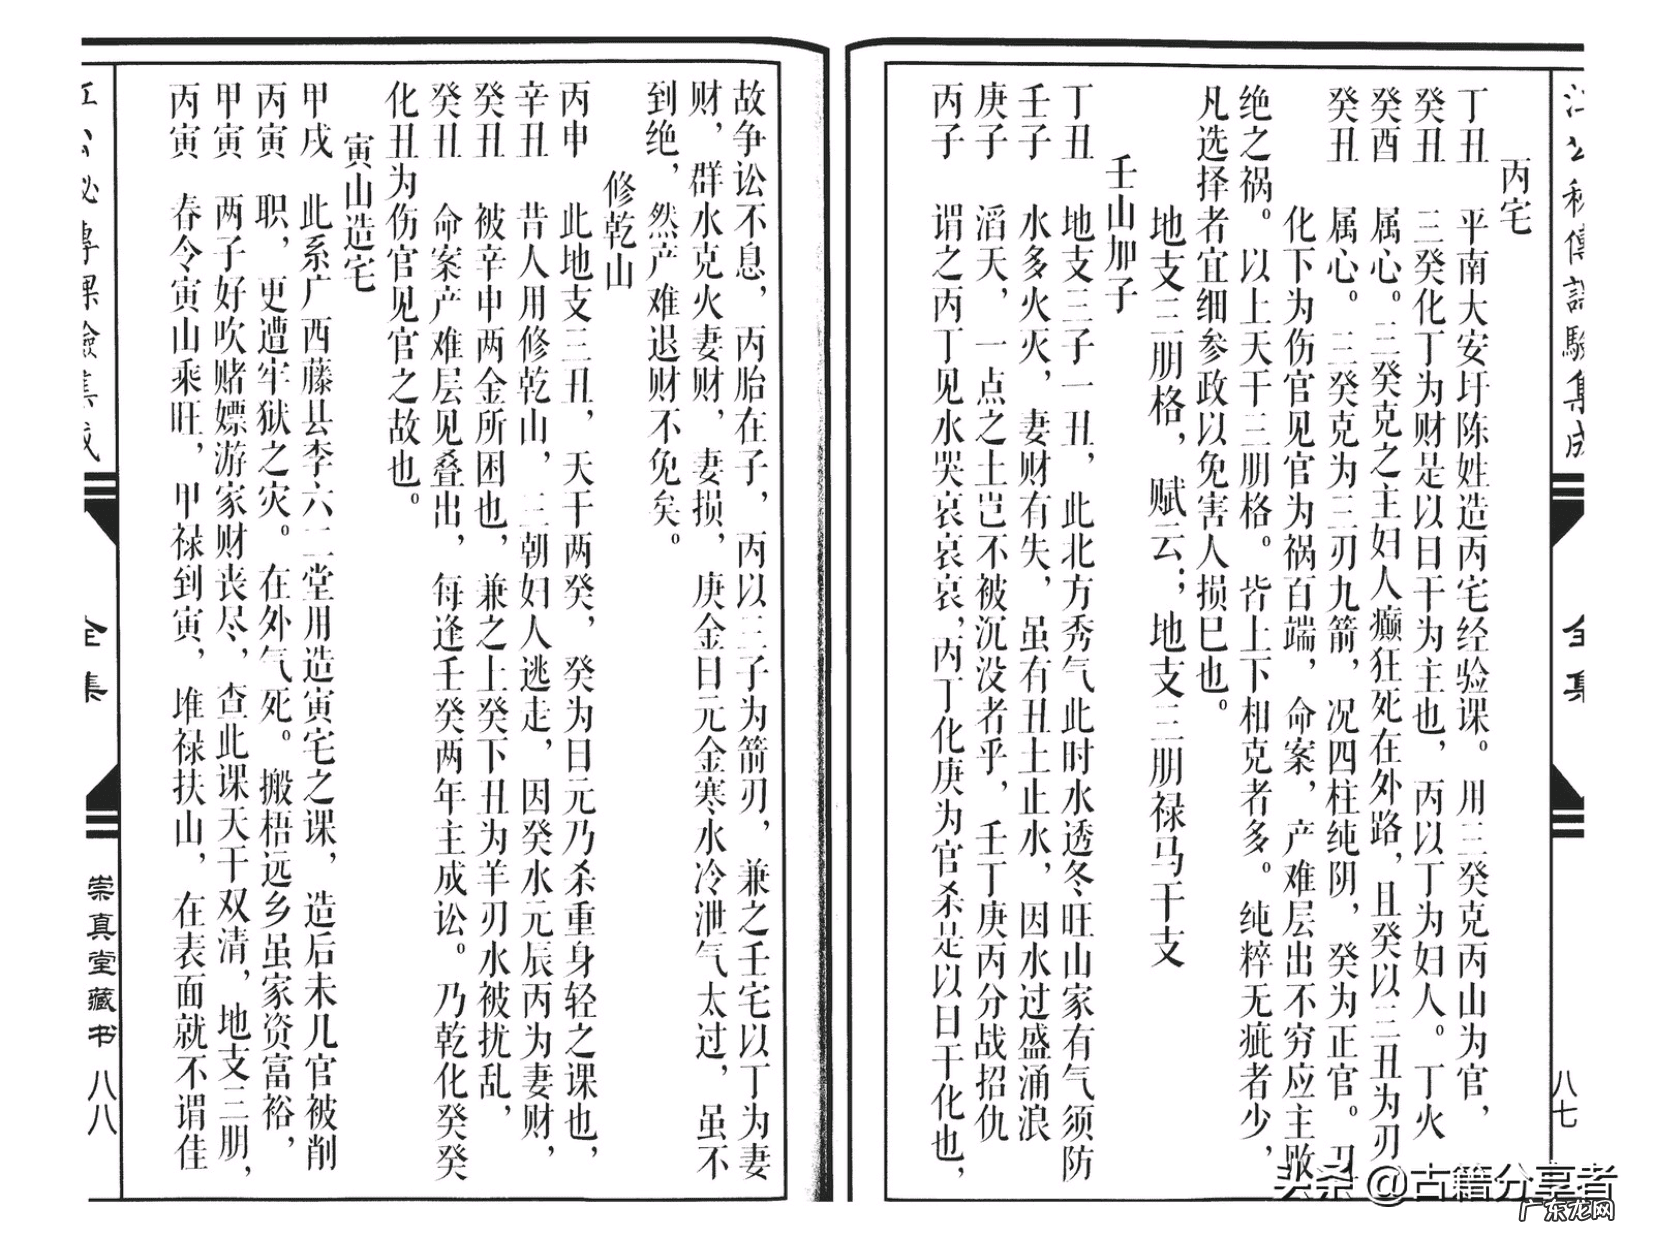 丙宅
丁丑　平南大安圩陈姓造丙宅经验课。用三癸克丙山为官，
癸丑　三癸化丁为财是以日干为主也，丙以丁为妇人。丁火
癸酉　属心。三癸克之主妇人癫狂死在外路，且癸以三丑为刃
癸丑　属心。三癸克为三刃九箭，况四柱纯阴，癸为正官。丑
化下为伤官见官为祸百端，命案，产难层出不穷应主败
绝之祸。以上天干三朋格。皆上下相克者多。纯粹无疵者少，
凡选择者宜细参政以免害人损巳也。
地支三朋格，赋云；地支三朋禄马干支
壬山加子
丁丑　地支三子一丑，此北方秀气此时水透冬旺山家有气须防
壬子　水多火灭，妻财有失，虽有丑土止水，因水过盛涌浪
庚子　滔天，一点之土岂不被沉没者乎，壬丁庚丙分战招仇
丙子　谓之丙丁见水哭哀哀，丙丁化庚为官杀是以日干化也，
八七
故争讼不息，丙胎在子，丙以三子为箭刃，兼之壬宅以丁为妻
财，群水克火妻财，妻损，庚金日元金寒水冷泄气太过，虽不
到绝，然产难退财不免矣。
修乾山
丙申　此地支三丑，天干两癸，癸为日元乃杀重身轻之课也，
辛丑　昔人用修乾山，三朝妇人逃走，因癸水元辰丙为妻财，
癸丑　被辛申两金所困也，兼之上癸下丑为羊刃水被扰乱，
癸丑　命案产难层见叠出，每逢壬癸两年主成讼。乃乾化癸癸
化丑为伤官见官之故也。
寅山造宅
甲戌　此系广西藤县李六二堂用造寅宅之课，造后未几官被削
丙寅　职，更遭牢狱之灾。在外气死。搬梧远乡虽家资富裕，
甲寅　两子好吹赌嫖游家财丧尽，查此课天干双清，地支三朋，
丙寅　春令寅山乘旺，甲禄到寅，堆禄扶山，在表面就不谓佳
全集
崇真堂藏书　八八
头条 @古籍分享者
广东龙网